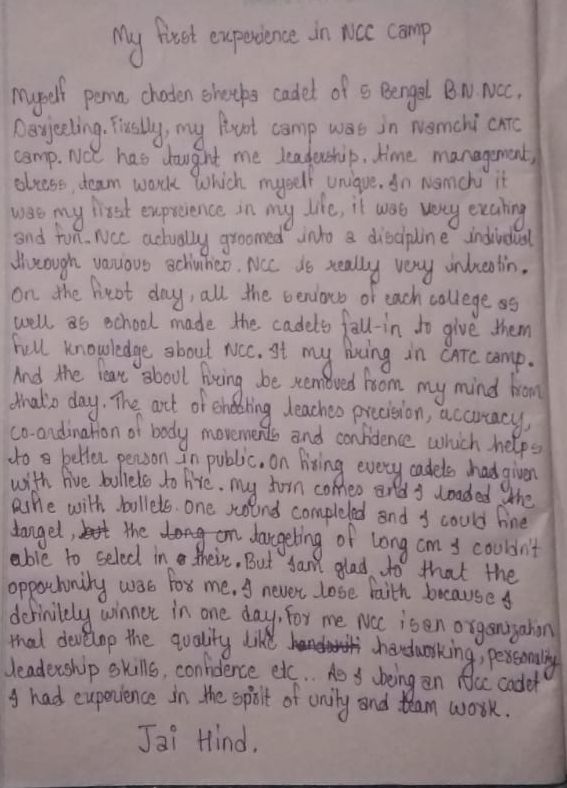 My first experience in NCC camp
Myself pema choden sherpa cadet of 5 Bengal B.N. NCC,
Darjeeling. Firstly, my first camp was in Namchi CATC
camp. NCC has taught me leadership, time management,
stress, team work which myself unique. In Namchi it
was my first expreience in my life, it was very exciting
and fun. NCC actually groomed into a discipline individual
through various activities. NCC is really very intrestin.
On the first day, all the seniors of each college as
well as school made the cadets fall-in to give them
full knowledge about NCC. It my firing in CATC camp.
And the fear about firing be removed from my mind from
that's day. The art of shooting teaches precision, accuracy,
co-ordination of body movements and confidence which helps
to a better person in public. On firing every cadets had given
with five bullets to fire. My turn comes and I loaded the
Rifle with bullets. One round completed and I could fine
target, but the long cm targeting of long cm I couldn't
able to select in a their. But Iam glad to that the
opportunity was for me. I never lose faith because I
definitely winner in one day. For me NCC is an organization
that develop the quality like handwriti hardworking, personality
leadership skills, confidence etc.. As I being an Ncc cadet
I had experience in the spirit of unity and team work.
Jai Hind.